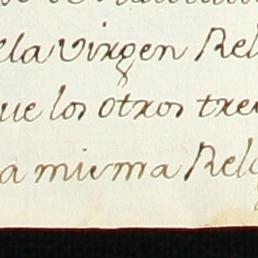 ela Virgen Rel
que los otros tre
a misma Relo